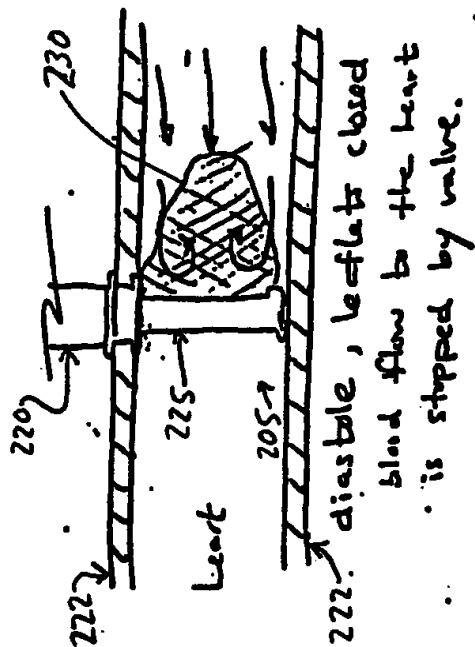 220
230
222
225
heart
205
222
diastole, leaflets closed
blood flow to the heart
is stopped by valve.